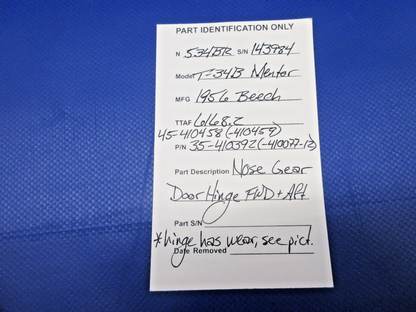 PART IDENTIFICATION ONLY
N 534BR S/N 143984
Model T-34B Mentor
MFG 1956 Beech
TTAF 6168.2
45-410458 (-410459)
P/N 35-410392 (-410077-12)
Part Description Nose Gear
Door Hinge FWD + Aft
Part S/N
*hinge has wear, see pict.
Date Removed